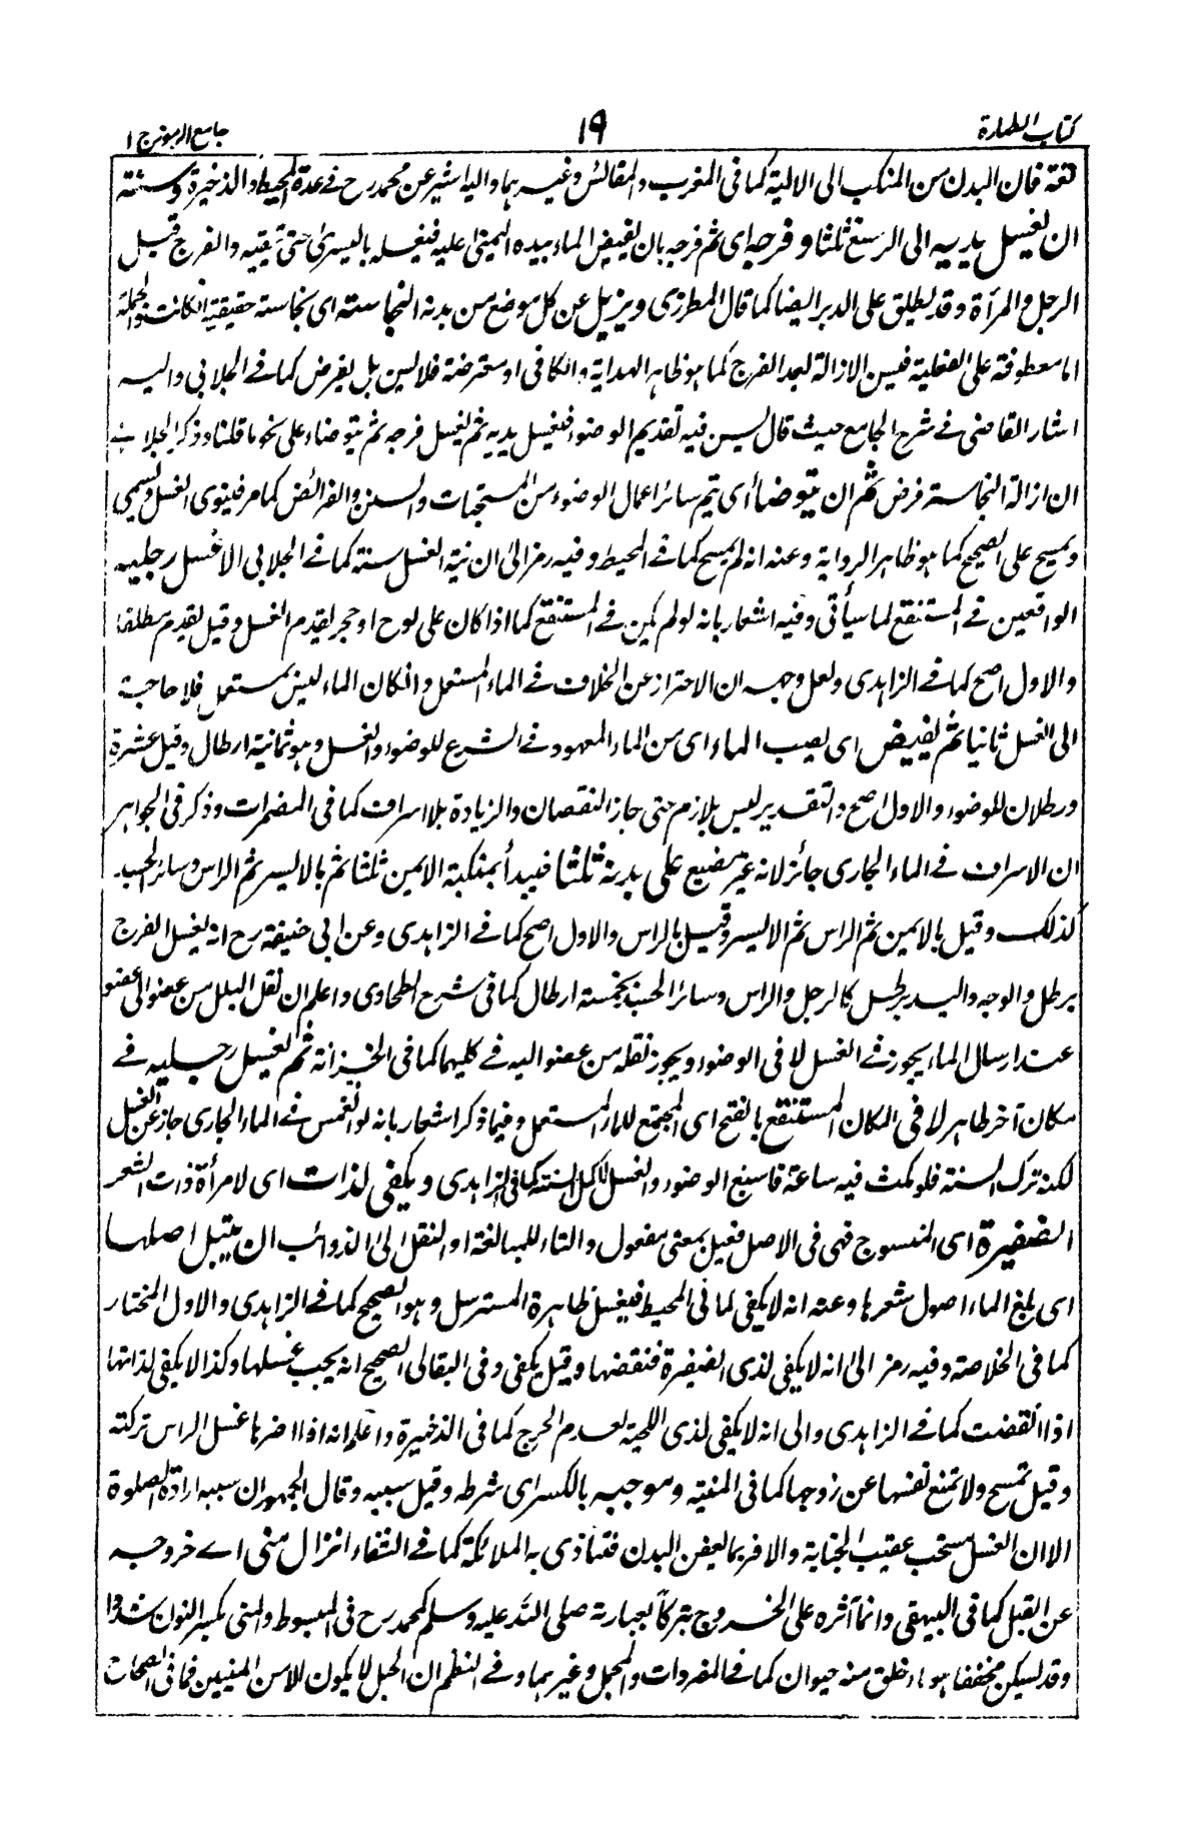 كتاب الطهارة
١٩
جامع الرموز ج ١
لغة فان البدن من المنكب الى الالية كما فى المغرب والمقائس وغيرهما واليه اشير عن محمد رح فے عدة المحيط والذخيرة وسنته
ان يغسل يديه الى الرسغ ثلثا و فرجه اى ثم فرجه بان يفيض الماء بيده اليمنى عليه فيغسله باليسرى حتى ينقيه والفرج قبل
الرجل والمرأة وقد يطلق على الدبر ايضا كما قال المطرزى ويزيل عن كل موضع من بدنه النجاسته اى نجاسة حقيقية انكانت والجملة
اما معطوفة على الفعلية فيسن الازالة بعد الفرج كما هو ظاهر الهداية والكافى او معترضة فلا يسن بل يفرض كما فے الجلابى واليه
اشار القاضى فے شرح الجامع حيث قال يسن فيه تقديم الوضوء فيغسل يديه ثم يغسل فرجه ثم يتوضاء على نحو ما قلنا وذكر الجلابے
ان ازالة النجاسة فرض ثم ان يتوضأ اى يتم سائر اعمال الوضوء من المستحبات والسنن والفرائض كما مر فينوى الغسل ويسمى
ويمسح على الصحيح كما هو ظاهر الرواية وعنه انه لم يمسح كما فے المحيط وفيه رمز الى ان نية الغسل سنة كما فے الجلابى الا غسل رجليه
الواقعين فے المستنقع لما سيأتى وفيه اشعار بانه لو لم يكن فے المستنقع كما اذا كان على لوح او حجر يقدم الغسل وقيل يقدم مطلقا
والاول اصح كما فے الزاهدى ولعل وجهه ان الاحتراز عن الخلاف فے الماء المستعمل وانكان الماء ليس بمستعمل فلا حاجة
الى الغسل ثانيا ثم يفيض اى يصب الماء اى من الماء المعهود فے الشرع للوضوء والغسل وهو ثمانية ارطال وقيل عشرة
ورطلان للوضوء والاول اصح والتقدير ليس بلازم حتى جاز النقصان والزيادة بلا اسراف كما فى المضمرات وذكر فى الجواهر
ان الاسراف فے الماء الجارى جائز لانه غير مضيع على بدنه ثلثا فيبدأ بمنكبه الايمن ثلثا ثم بالايسر ثم الراس وسائر الجسد
كذلك وقيل بالايمن ثم الراس ثم الايسر وقيل بالراس والاول اصح كما فے الزاهدى وعن ابى حنيفة رح انه يغسل الفرج
برطل والوجه واليد برطل كالرجل والراس وسائر الجسد بخمسة ارطال كما فى شرح الطحاوى واعلم ان نقل البلل من عضو الى عضو
عند ارسال الماء يجوز فے الغسل لا فى الوضوء ويجوز نقله من عضو اليه فے كليهما كما فى الخزانة ثم يغسل رجليه فے
مكان آخر طاهر لا فى المكان المستنقع بالفتح اى المجتمع للماء المستعمل وفيما ذكر اشعار بانه لو انغمس فے الماء الجارى جاز عن الغسل
لكنه ترك السنة فلو مكث فيه ساعة فاسبغ الوضوء والغسل لاكمل السنة كما فى الزاهدى ويكفى لذات اى لامرأة ذات الشعر
الضفيرة اى المنسوج فهى فى الاصل فعيل بمعنى مفعول والتاء للمبالغة او النقل الى الذوائب ان يبتل اصلها
اى يبلغ الماء اصول شعرها وعنه انه لا يكفى لما فى المحيط فيغسل ظاهرة المسترسل وهو الصحيح كما فے الزاهدى والاول المختار
كما فى الخلاصة وفيه رمز الى انه لا يكفى لذى الضفيرة فنقضها وقيل يكفى وفى البقالى الصحيح انه يجب غسلها وكذا لا يكفى لذاتها
اذا انقضت كما فے الزاهدى والى انه لا يكفى لذى اللحية لعدم الحرج كما فى الذخيرة واعلم انه اذا اضرها غسل الراس تركته
وقيل تمسح ولا تمنع نفسها عن زوجها كما فى المنية وموجبه بالكسر اى شرطه وقيل سببه وقال الجمهور ان سببه ارادة الصلوة
الا ان الغسل مستحب عقيب الجنابة والا فربما يعفن البدن فتتاذى به الملائكة كما فے الشفاء انزال منى اے خروجه
عن القبل كما فى البيهقى وانما آثره على الخروج تبركا بعبارته صلى الله عليه وسلم كمحمد رح فى المبسوط والمنى بكسر النون مشددا
وقد يسكن مخففا هو ماء خلق منه حيوان كما فے المفردات والمجمل وغيرهما وفے النظم ان الحبل لا يكون الا من المنيين فما فى الصحاح